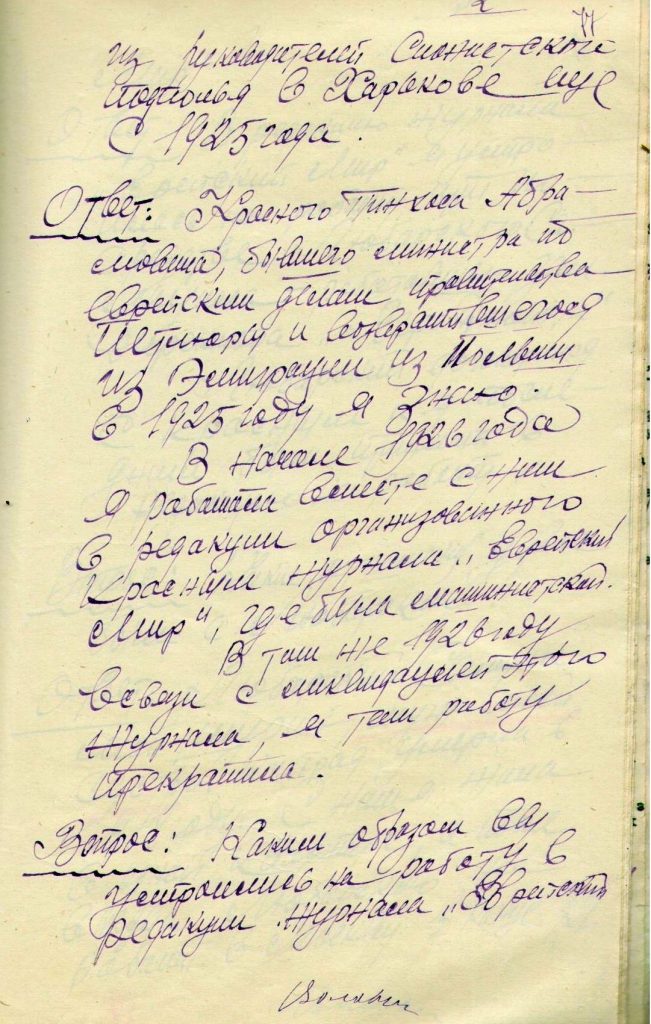 2
77
из руководителей Сионистского
подполья в Харькове еще
с 1925 года.
Ответ: Красного Пинхоса Абра-
мовича, бывшего министра по
еврейским делам правительства
Петлюры и возвратившегося
из Эмиграции из Польши
в 1925 году я знаю.
В начале 1926 года
я работала вместе с ним
в редакции организованного
Красным журнала „Еврейский
Мир", где была машинисткой.
В том же 1926 году
в связи с ликвидацией этого
журнала, я там работу
прекратила.
Вопрос: Каким образом Вы
устроились на работу в
редакции журнала „Еврейский